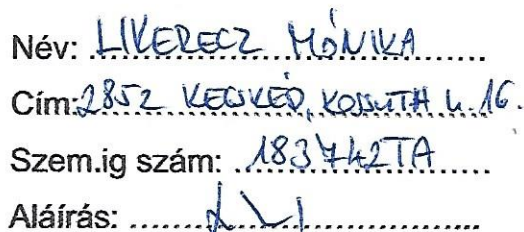 Név: LIKERECZ MÓNIKA
Cím: 2852 KECSKÉD, KOSSUTH u. 16.
Szem.ig szám: 183742TA
Aláírás: